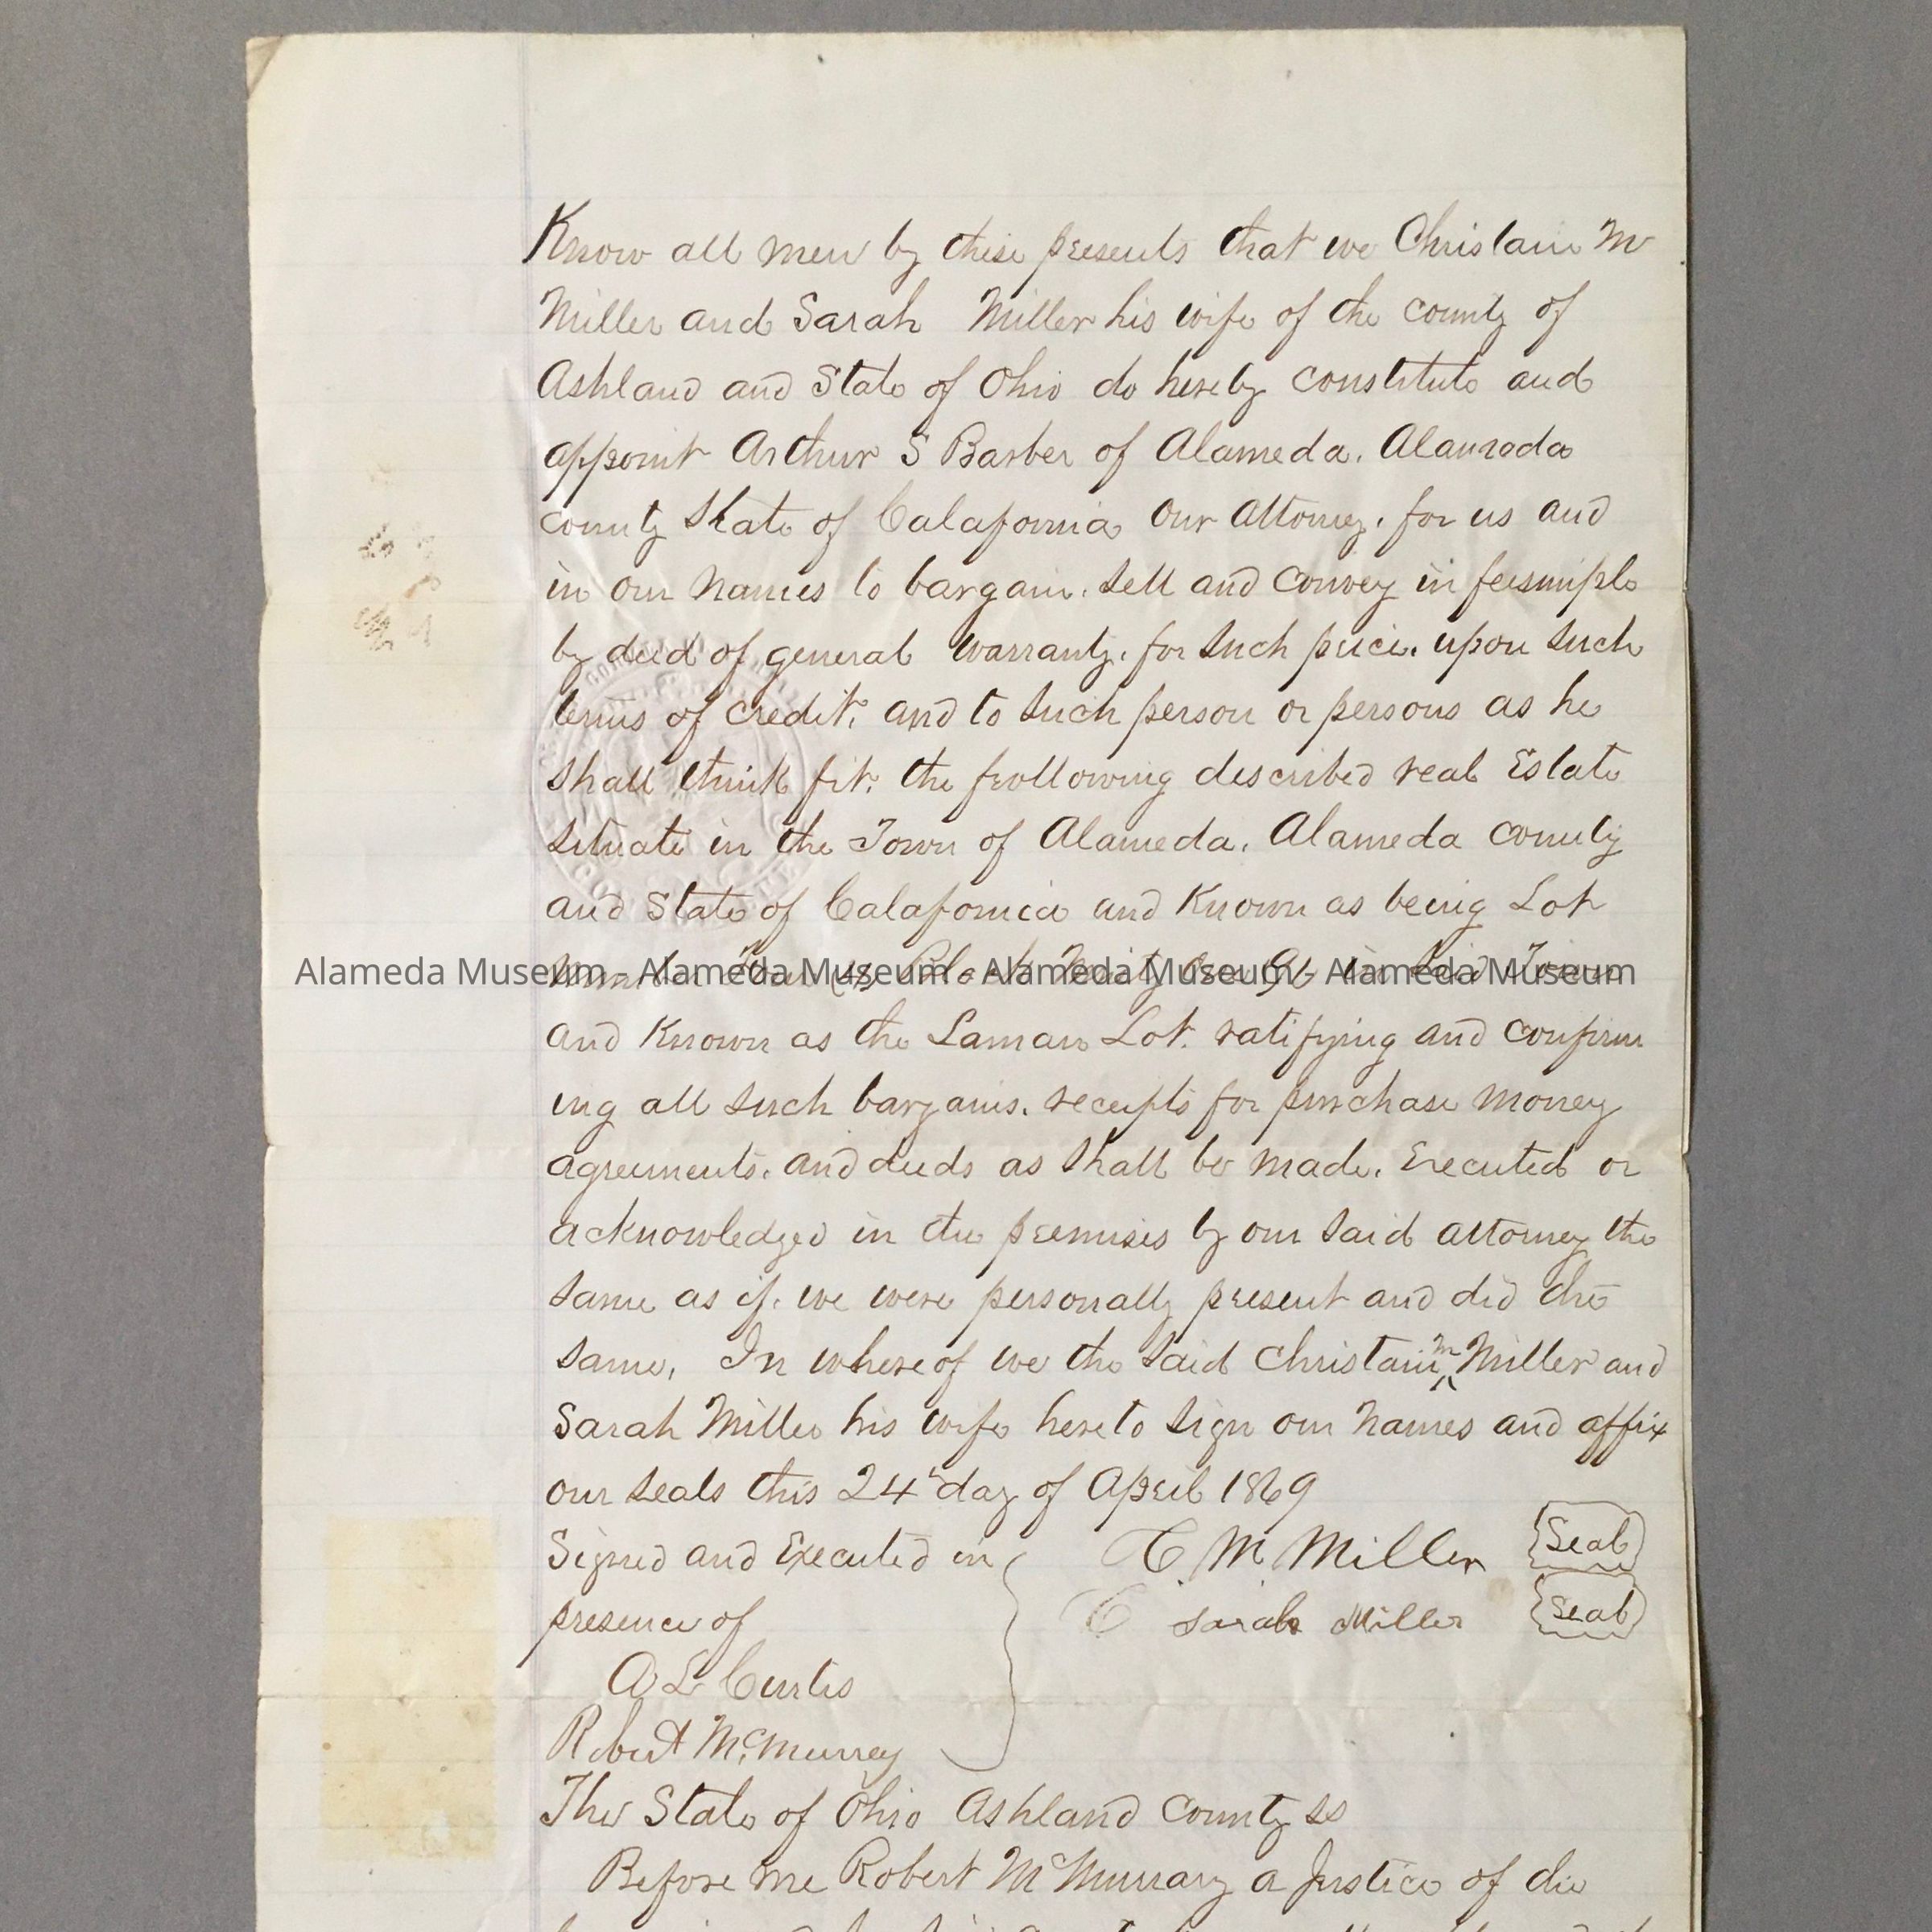 Know all men by these presents that we Christain M
Miller and Sarah Miller his wife of the county of
Ashland and State of Ohio do hereby constitute and
appoint Arthur S Barber of Alameda. Alameda
county State of Calafornia our attorney. for us and
in our names to bargain. sell and convey in feesimple
by deed of general warranty. for such price. upon such
terms of credit. and to such person or persons as he
shall think fit. the following described real Estate
situate in the Town of Alameda. Alameda county
and State of Calafornia and Known as being Lot
Number Four (4) Block Ninty in said Town
Alameda Museum - Alameda Museum - Alameda Museum - Alameda Museum
and Known as the Laman Lot. ratifying and confirm
ing all such bargains. receipts for purchase money
agreements. and deeds as shall be made. Executed or
acknowledged in the premises by our said attorney the
same as if. we were personally present and did the
same, In whereof we the said Christain M Miller and
Sarah Miller his wife hereto sign our names and affix
our seals this 24t day of April 1869
Signed and Executed in C. M. Miller Seal
presence of Sarah Miller Seal
A L Curtis
Robert McMurray
The State of Ohio Ashland County ss
Before me Robert McMurray a Justice of the